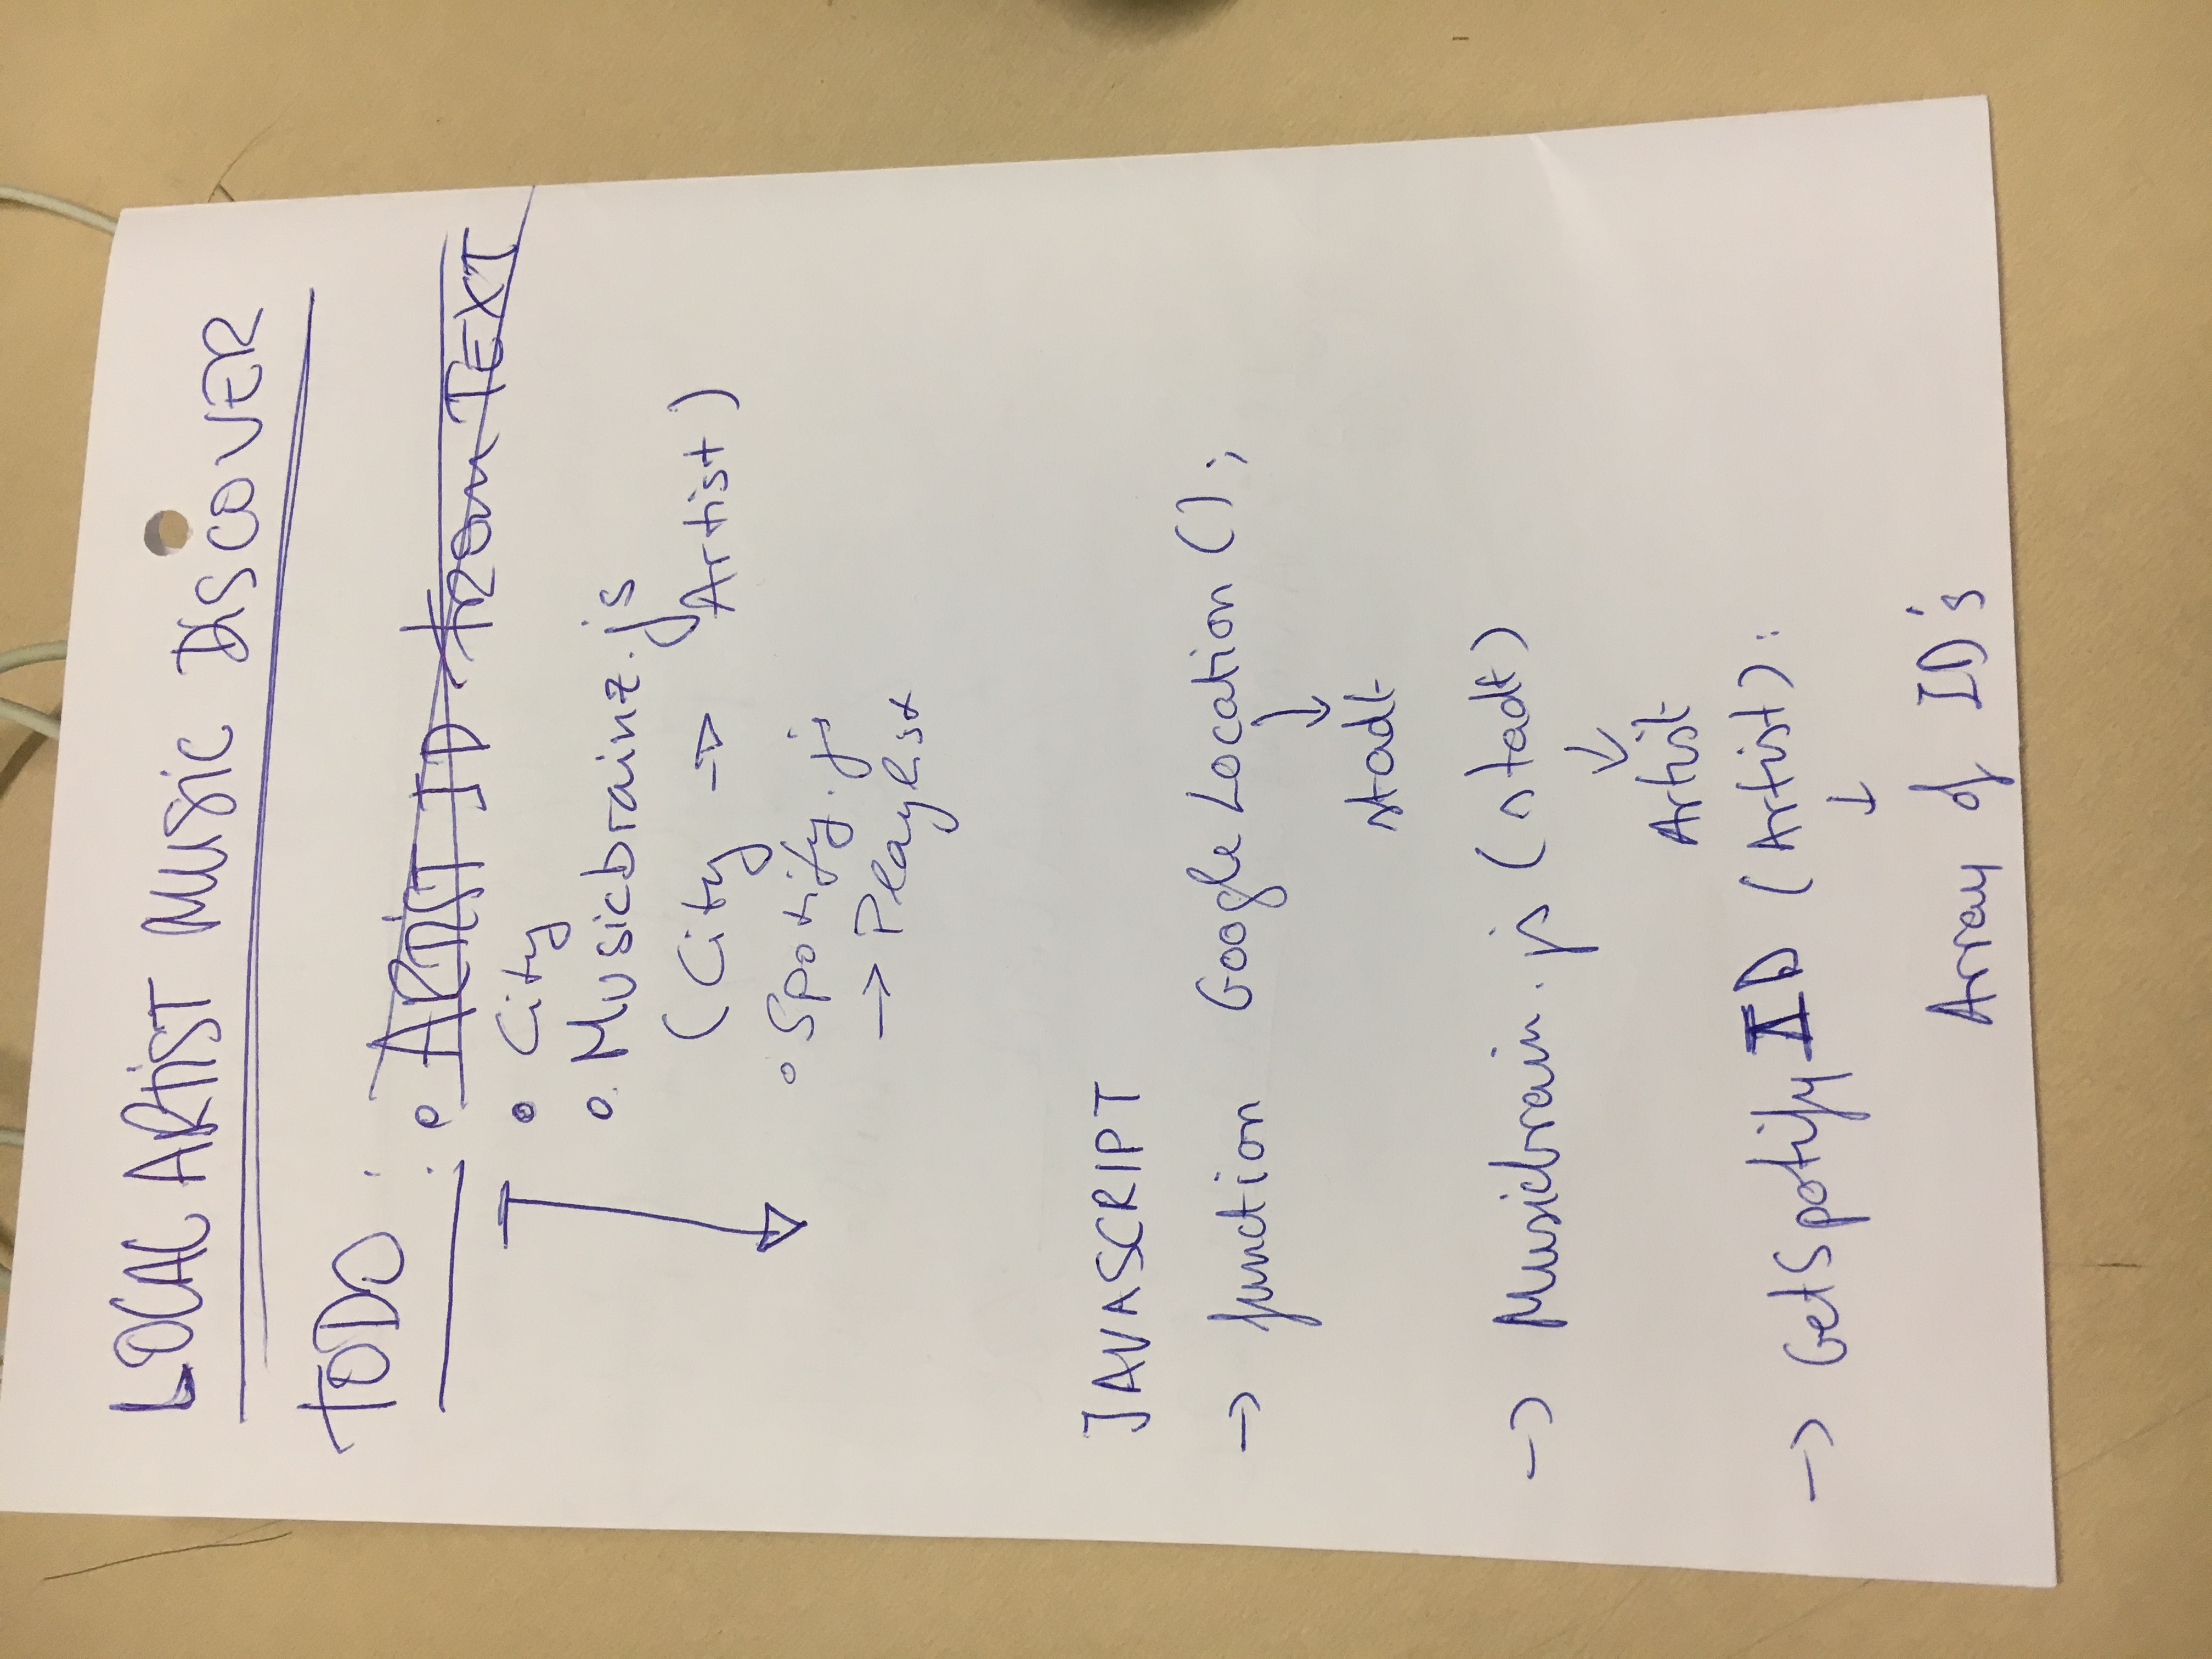 LOCAL ARTIST MUSIC DISCOVER
TODO :
• ARTIST ID from TEXT
• City
• Musicbrainz.js
(City → Artist)
• Spotify.js
→ Playlist
JAVASCRIPT
→ function GoogleLocation();
↓
stadt
→ Musicbrain.js (stadt)
↓
Artist
→ GetSpotifyID (Artist):
↓
Array of ID's